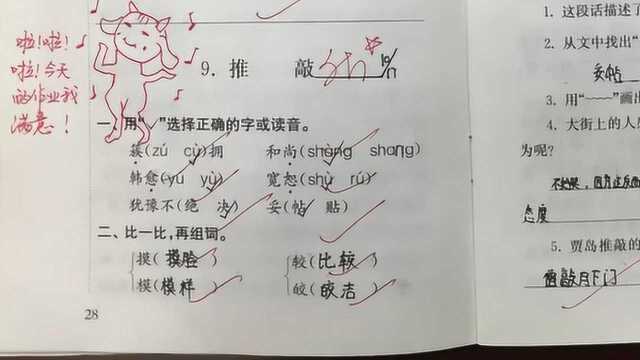 啦!啦!
啦!今天
的作业我
满意!
9.推 敲
一、用“✓”选择正确的字或读音。
簇(zú cù)拥 和尚(shàng shang)
韩愈(yú yù) 宽恕(shù rú)
犹豫不(绝 决) 妥(帖 贴)
二、比一比,再组词。
摸(摸脸) 较(比较)
模(模样) 皎(皎洁)
28
1. 这段话描述了
2. 从文中找出“
妥帖
3. 用“﹏﹏”画出
4. 大街上的人
为呢?
态度
5. 贾岛推敲的
僧敲月下门